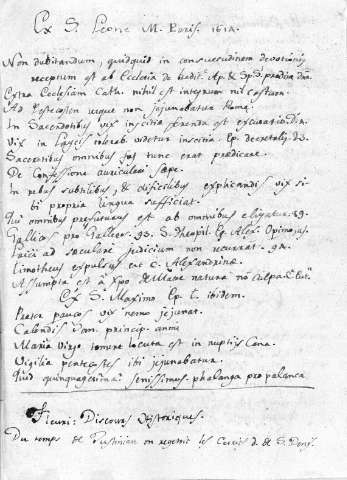 Ex S. Leone M. Paris. 1614.
Non dubitandum, quidquid in consuetudinem devotionis
receptum est ab Ecclesia de tradit. Ap. & Sp. S.
Extra Ecclesiam Cath. nihil est integrum nil castum.
Ad Pestecosten usque non jejunabatur Romæ.
In Sacerdotibus vix inscitia ferenda est
Vix in Laicis tolerab. videtur inscitia. Ep. decretal.
Sacerdotibus omnibus fas tunc erat prædicare.
De Confessione auriculari sæpe.
In rebus subtilibus, & dificilibus explicandis vix si-
bi propria lingua sufficiat.
Qui omnibus præfuturus est ab omnibus eligatur. 89.
Gallicos pro Galleos. 93. S. Theopil. Ep. Alex.
ad sæculare judicium non recurrat. 92.
Timotheus expulsus est C. Alexandrinæ.
Assumpta est a Xpo de Matre natura nõ Culpa.
Ex S. Maximo Ep. T. ibidem.
Præter paucos vix nemo jejunat.
Calendis Jan. princip. anni
Maria Virgo temere locuta est in nuptijs Canæ.
Vigilia pentecostes ibi jejunabatur.
Quid quinquagesima? senissimus. phalanga pro palanca
Fleuri: Discours Historiques.
Du temps de Justinian on les de S.